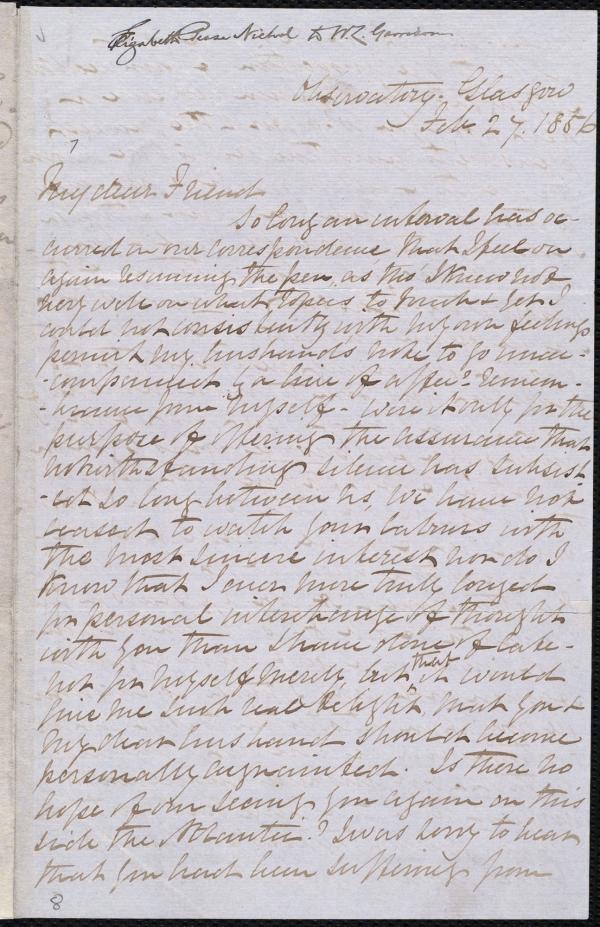 Elizabeth Pease Nichol to W.L. Garrison
Observatory. Glasgow
Feb. 27. 1856
7
My dear Friend
So long an interval has oc-
curred in our correspondence that I feel on
again resuming the pen, as tho' I knew not
very well on what topics to touch & yet I
could not consistently with my own feelings
permit my husband's note to go unac-
-companied by a line of affec.te remem-
-brance from myself - were it only for the
purpose of offering the assurance that
notwithstanding silence has subsist-
-ed so long between us, we have not
ceased to watch your labours with
the most sincere interest nor do I
know that I ever more truly longed
for personal interchange of thought
with you than I have done of late -
not for myself merely, but that it would
give me such real delight, that you &
my dear husband should become
personally acquainted. Is there no
hope of our seeing you again on this
side the Atlantic? I was sorry to hear
that you had been suffering from
8